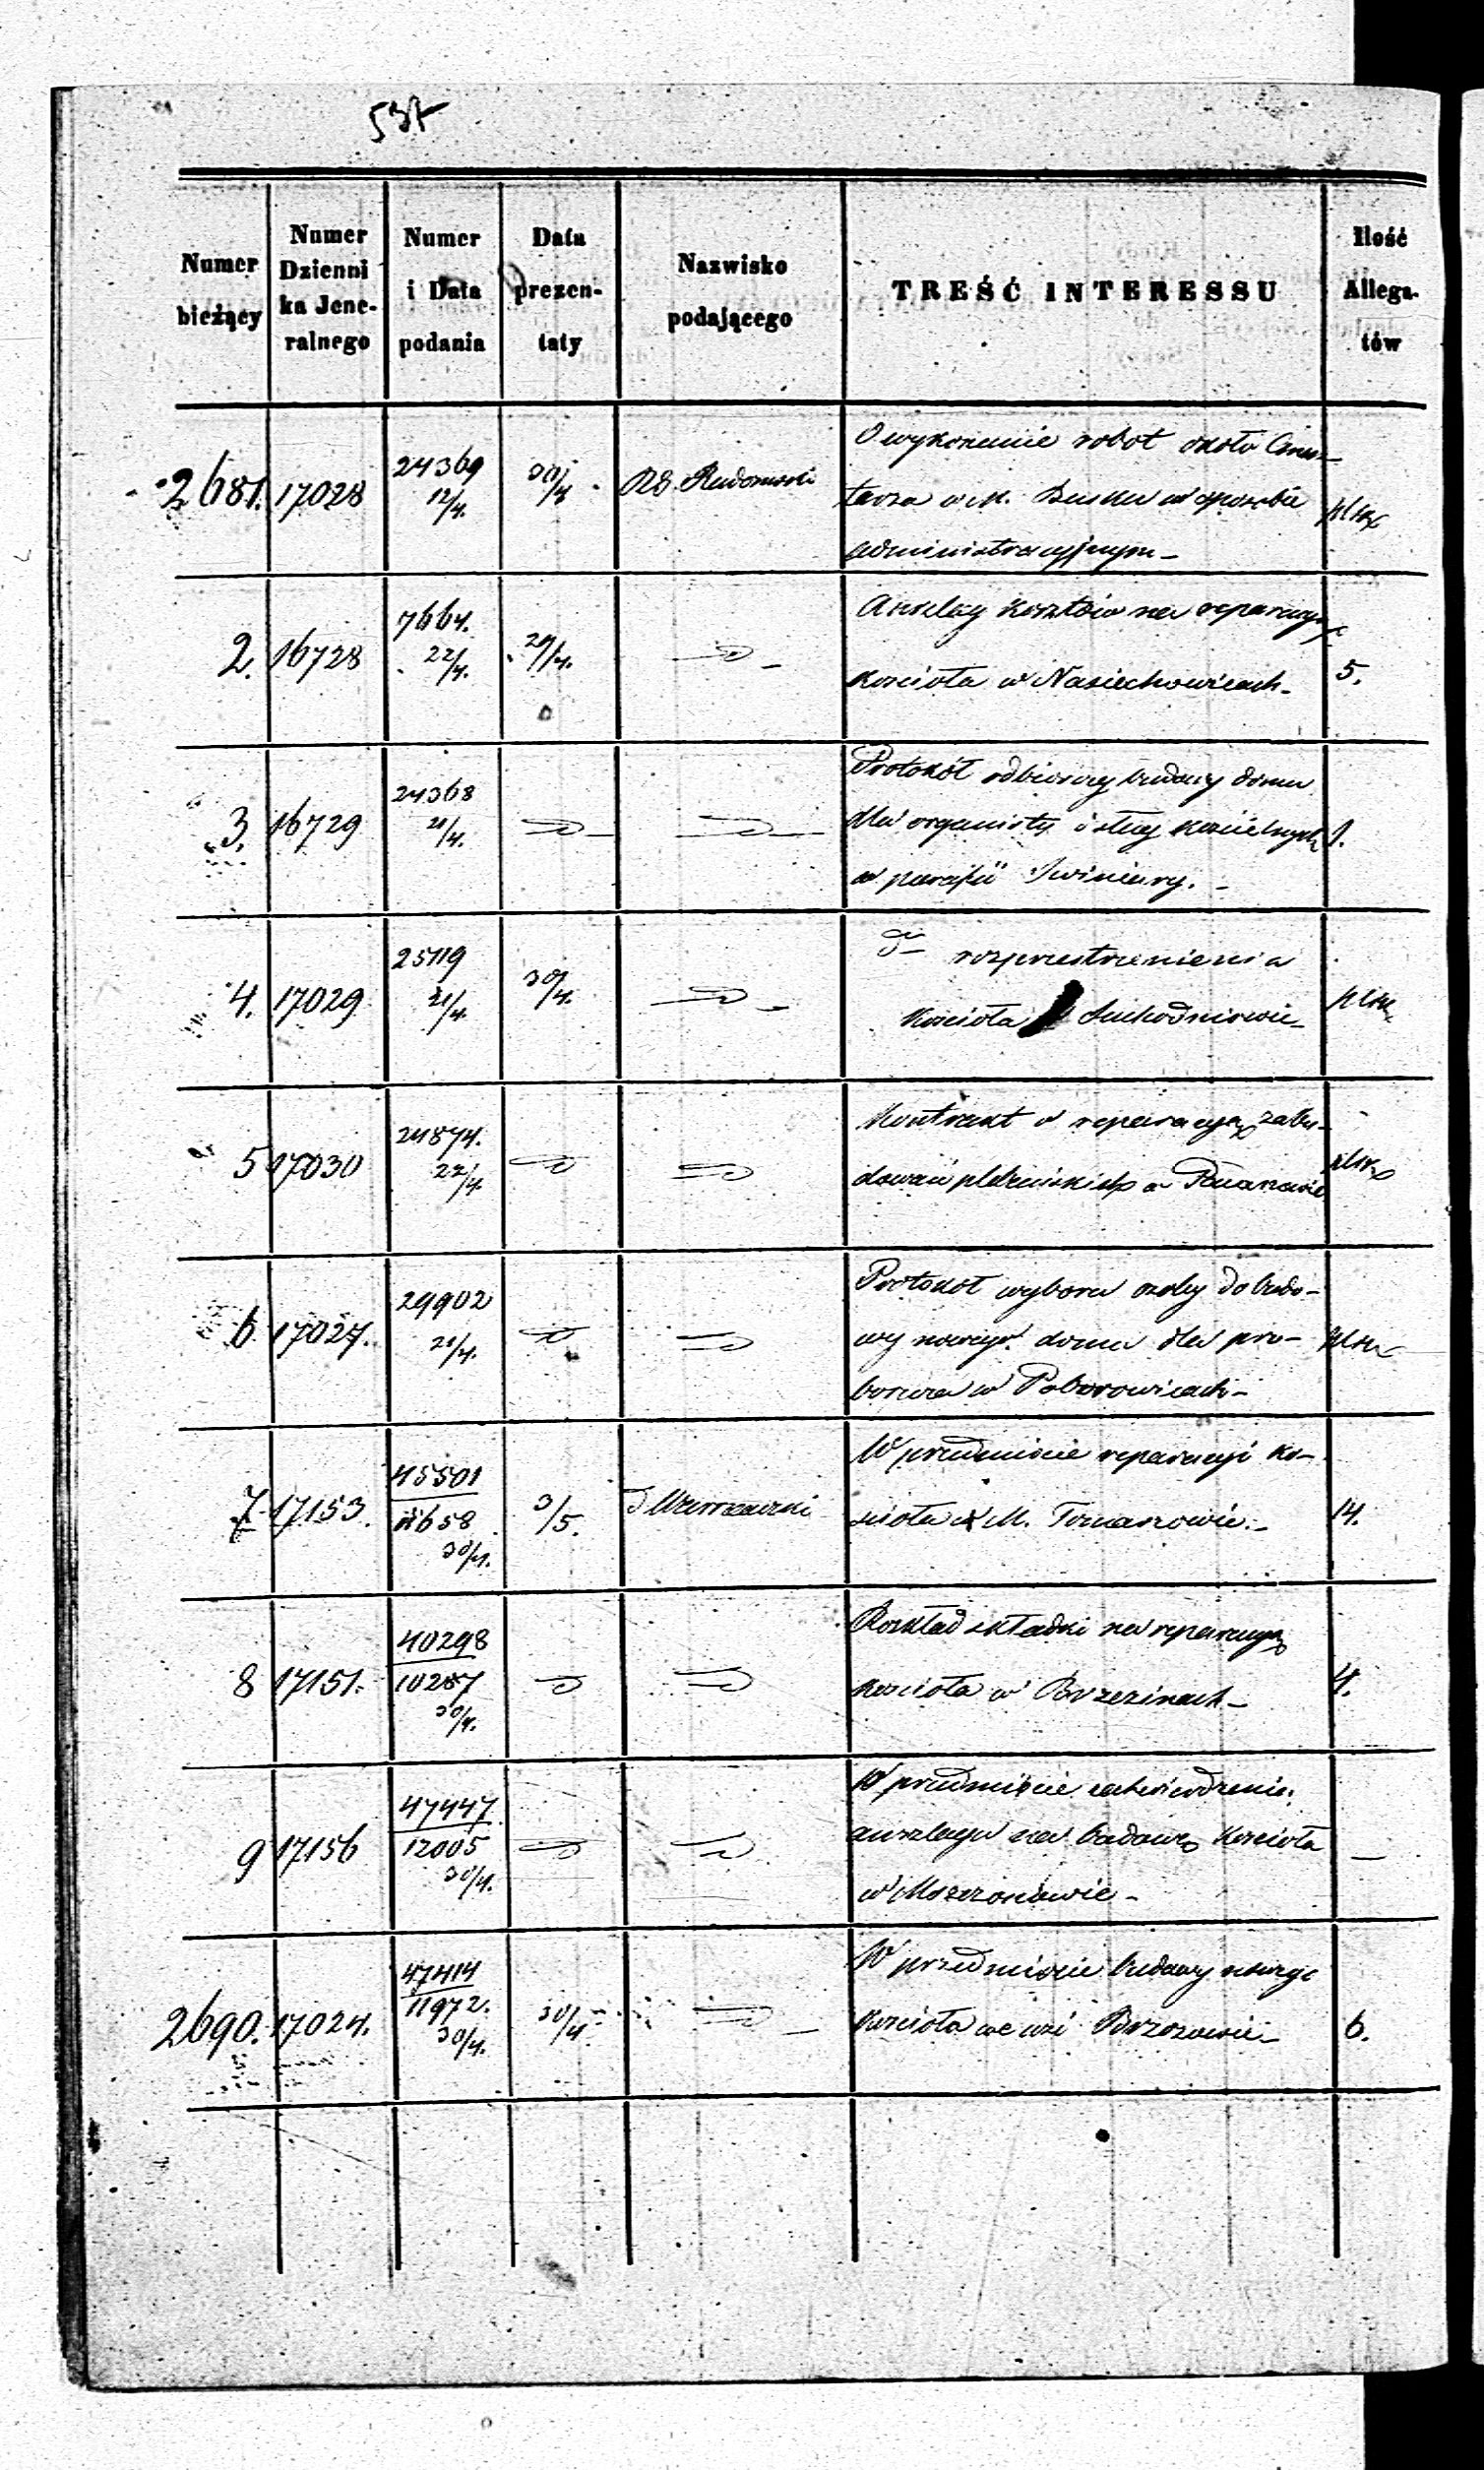 Numer bieżący
Numer Dzienni ka Jene- ralnego
Numer i Data podania
Data prezen- taty
Nazwisko podającego
TREŚĆ INTERESSU
Ilość Allega- tów
2681. 17028 24369 12/4. 30/4 RG. Radomski
O wykonanie robot około Cmen-
tarza w M. Busku w sposobie
administracyjnym -
2. 16728 7664. 22/4. 29/4.
Anszlag kosztów na reparacyę
kościoła w Nasiechowicach - 5.
3. 16729 24368 21/4.
Protokół odbiorczy budowy domu
dla organisty i sług kościelnych 1.
w parafii Swiniary. -
4. 17029 25119 21/4. 30/4.
rozprzestrzenienia
kościoła Suchedniowie -
5 17030 24874. 22/4.
Kontrakt o reparacyą zabu-
dowań plebańskich w
6 17027. 29902 21/4.
Protokół wyboru osoby do budo-
wy nowego domu dla pro-
boszcza w Poborowicach -
7 17153. 45501 11658 30/4. 3/5.
W przedmiocie reparacyi ko-
scioła w M. Tomaszowie. - 14.
8 17151. 40298 10287 30/4.
Rozkład składki na reparacyę
kościoła w Brzezinach - 4.
9 17156 47447. 12005 30/4.
W przedmiocie zatwierdzenia
anszlagu na budowę kościoła -
w Mszczonowie -
2690. 17024. 47414 11972. 30/4. 30/4
W przedmiocie budowy nowego
kościoła we wsi Brzozowie - 6.